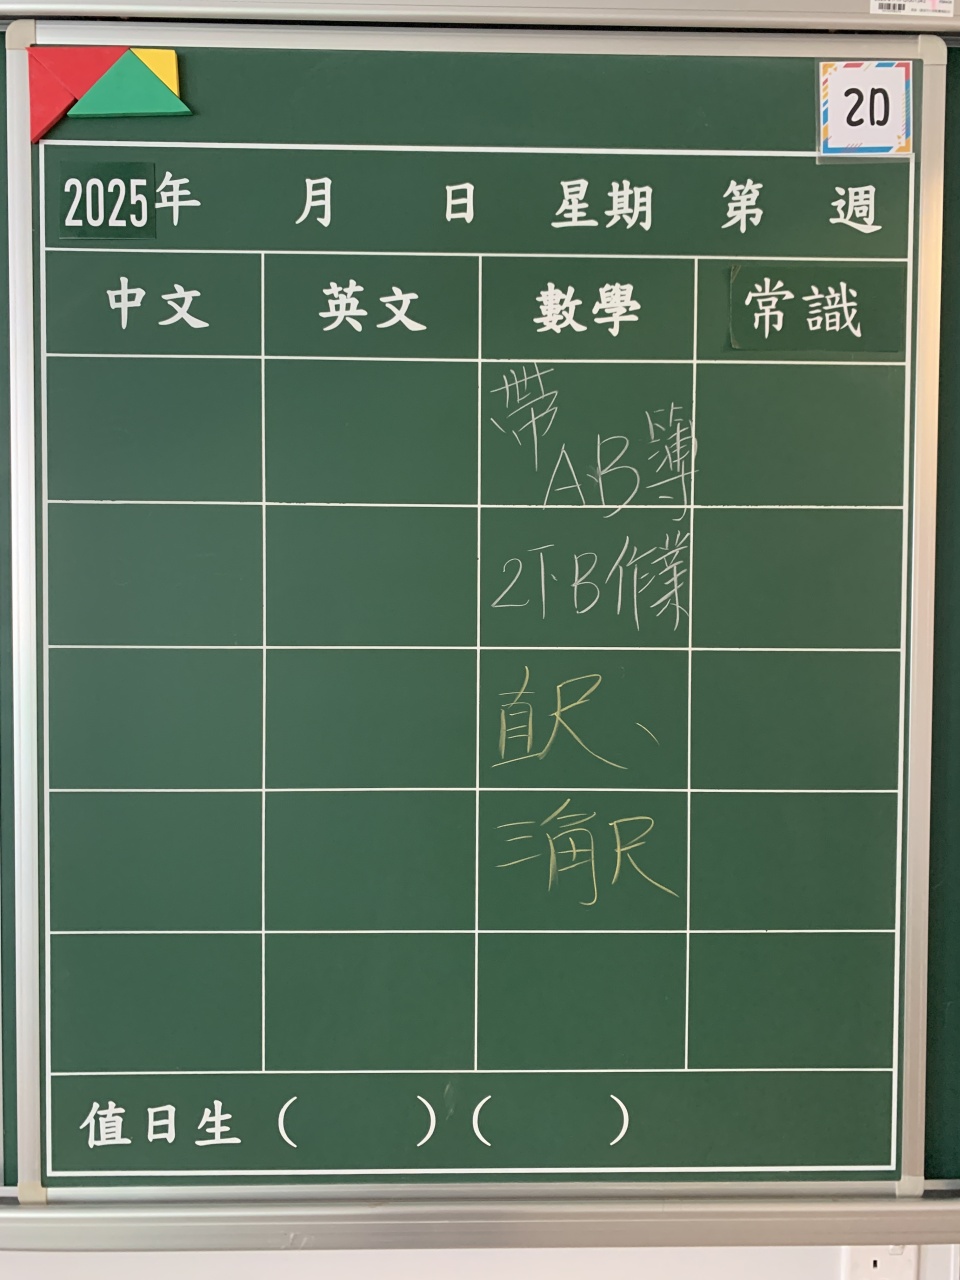 2D
2025年 月 日 星期 第 週
中文 英文 數學 常識
帶
AB簿
2下B作業
直尺、
三角尺
值日生 ( ) ( )